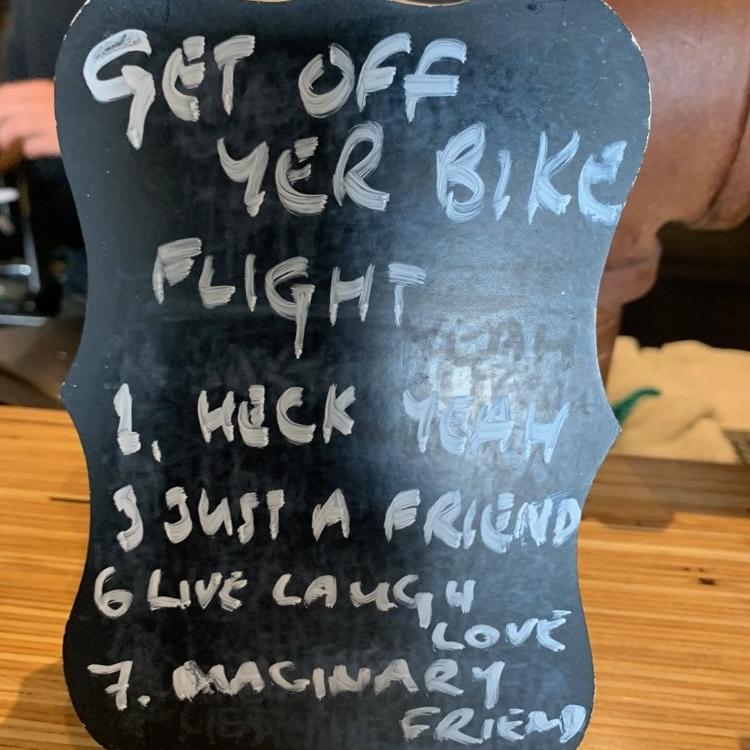 GET OFF
YER BIKE
FLIGHT
YEAH
1. HECK YEAH
3 JUST A FRIEND
6 LIVE LAUGH
LOVE
7. MAGINARY
FRIEND